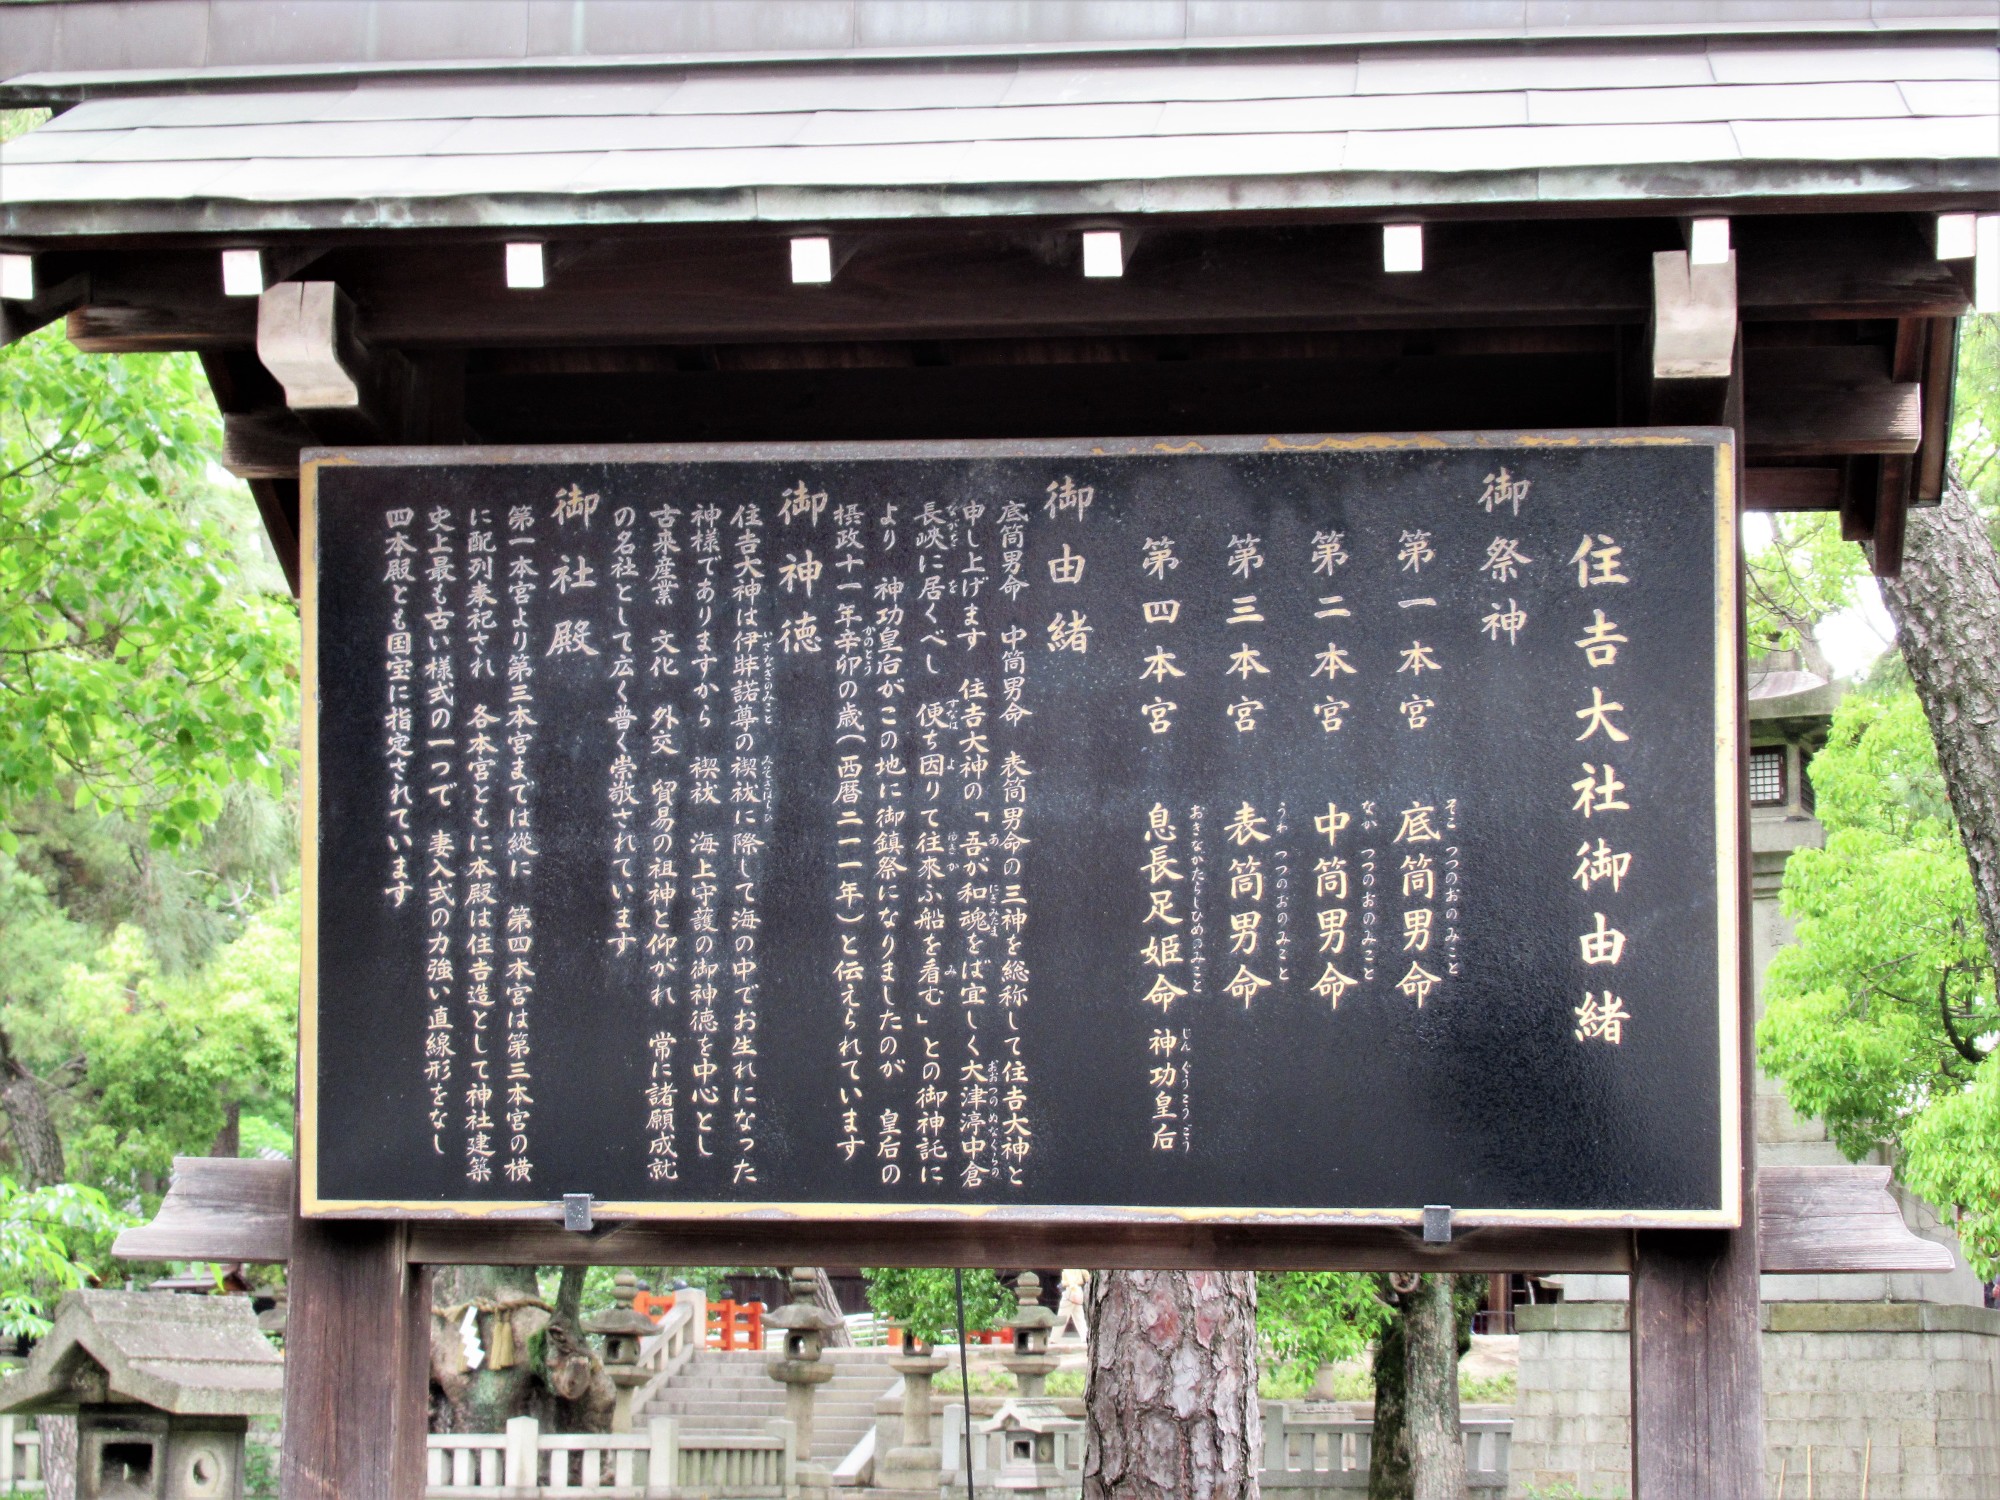 住吉大社御由緒
御祭神
第一本宮 底筒男命
そこ つつのおのみこと
第二本宮 中筒男命
なか つつのおのみこと
第三本宮 表筒男命
うわ つつのおのみこと
第四本宮 息長足姫命 神功皇后
おきながたらしひめのみこと じんぐうこうごう
御由緒
底筒男命 中筒男命 表筒男命の三神を総称して住吉大神と
申し上げます 住吉大神の「吾が和魂をば宜しく大津渟中倉
長峡に居くべし 便ち因りて往來ふ船を看む」との御神託に
より 神功皇后がこの地に御鎮祭になりましたのが 皇后の
摂政十一年辛卯の歳(西暦二一一年)と伝えられています
御神徳
住吉大神は伊弉諾尊の禊祓に際して海の中でお生れになった
神様でありますから 禊祓 海上守護の御神徳を中心とし
古来産業 文化 外交 貿易の祖神と仰がれ 常に諸願成就
の名社として広く普く崇敬されています
御社殿
第一本宮より第三本宮までは縦に 第四本宮は第三本宮の横
に配列奉祀され 各本宮ともに本殿は住吉造として神社建築
史上最も古い様式の一つで 妻入式の力強い直線形をなし
四本殿とも国宝に指定されています